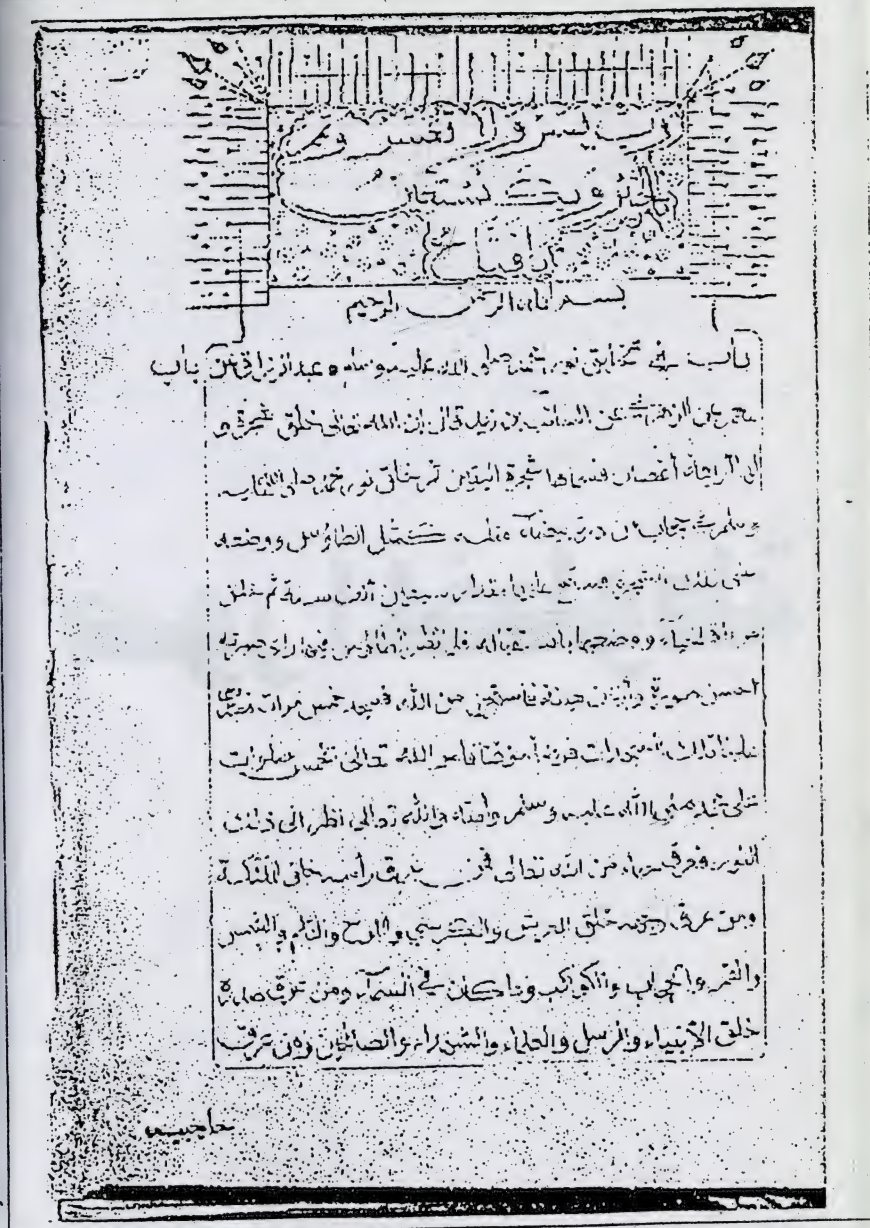 بسم الله الرحمن الرحيم
باب في تخليق نور محمد صلى الله عليه وسلم عبد الرزاق عن
معمر عن الزهري عن السائب بن زيد قال إن الله تعالى خلق شجرة و
أغصان شجرة اليقين ثم خلق نور محمد صلى الله عليه
وسلم في حجاب من درة بيضاء مثله كمثل الطاؤس ووضعه
على تلك الشجرة فسبح عليها مقدار سبعين ألف سنة ثم خلق
مرآة الحياء ووضعها باستقباله فلما نظر الطاؤس فيها رأى صورته
أحسن صورة وأزين هيئة فاستحيى من الله فسجد خمس مرات
علينا تلك السجدات فرضا موقتا فأمر الله تعالى بخمس صلوات
على محمد صلى الله عليه وسلم وأمته والله تعالى نظر إلى ذلك
النور فعرق حياء من الله تعالى فمن عرق رأسه خلق الملئكة
ومن عرق وجهه خلق العرش والكرسي واللوح والقلم والشمس
والقمر والحجاب والكواكب وما كان في السماء ومن عرق صدره
خلق الأنبياء والرسل والعلماء والشهداء والصالحين ومن عرق
حاجبيه